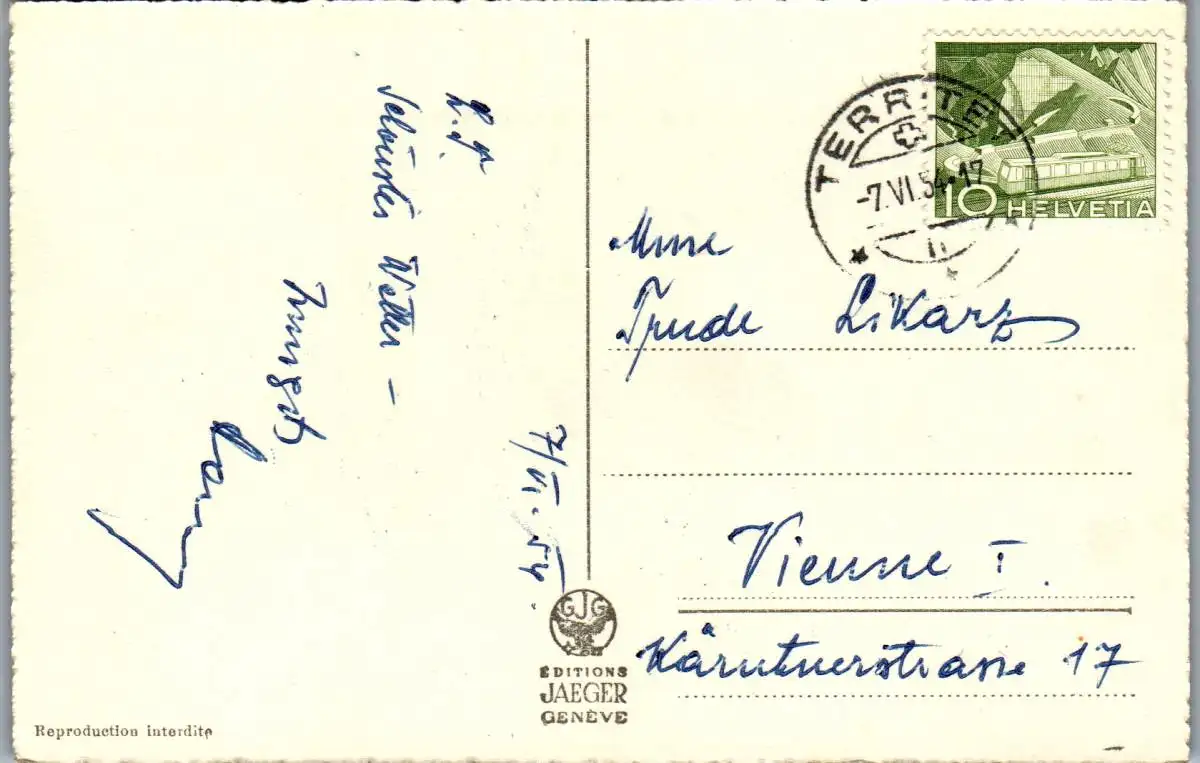 7/VI. 54.
L. T.
Schönstes Wetter –
Innigst
TERRITET
-7.VI.54.-17
10 HELVETIA
Mme
Trude Likarz
Vienne I.
Kärntnerstrasse 17
GJG
ÉDITIONS
JAEGER
GENÈVE
Reproduction interdite